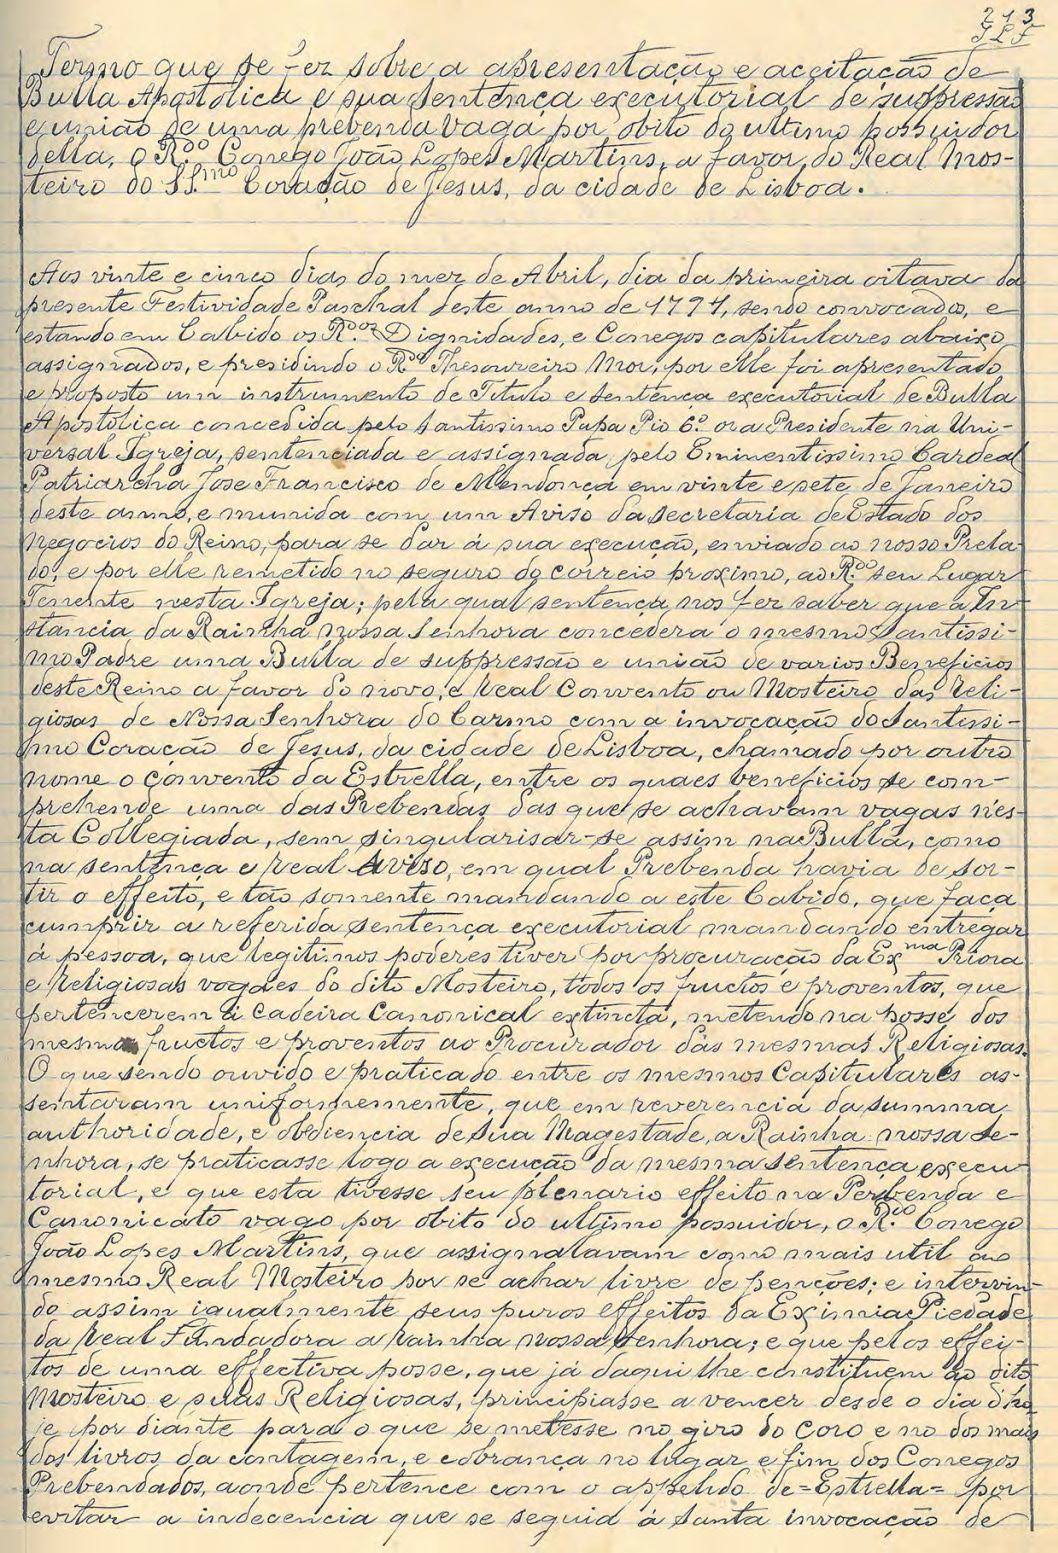 213
Termo que se fez sobre a apresentação e aceitação de
Bulla Apostolica e sua sentença executorial de suppressão
e união de uma prebenda vaga por obito do ultimo possuidor
della, o R.do Conego João Lopes Martins, a favor do Real Mos-
teiro do SS.mo Coração de Jesus, da cidade de Lisboa.
Aos vinte e cinco dias do mez de Abril, dia da primeira oitava da
presente Festividade Paschal deste anno de 1794, sendo convocados, e
estando em Cabido os R.dos Dignidades, e Conegos capitulares abaixo
assignados, e presidindo o R.do Thesoureiro Mor, por elle foi apresentado
e proposto um instrumento de Titulo e sentença executorial de Bulla
Apostolica concedida pelo Santissimo Papa Pio 6.º ora Presidente na Uni-
versal Igreja, sentenciada e assignada pelo Eminentissimo Cardeal
Patriarcha Jose Francisco de Mendonça em vinte e sete de Janeiro
deste anno, e munida com um Aviso da Secretaria de Estado dos
Negocios do Reino, para se dar á sua execução, enviado ao nosso Prela-
do, e por elle remetido no seguro do correio proximo, ao R.do seu Lugar
Tenente nesta Igreja; pela qual sentença nos fez saber que a In-
stancia da Rainha nossa Senhora concedera o mesmo Santissi-
mo Padre uma Bulla de suppressão e união de varios Beneficios
deste Reino a favor do novo, e real Convento ou Mosteiro das Reli-
giosas de Nossa Senhora do Carmo com a invocação do Santissi-
mo Coração de Jesus, da cidade de Lisboa, chamado por outro
nome o Convento da Estrella, entre os quaes beneficios se com-
prehende uma das Prebendas das que se achavam vagas nes-
ta Collegiada, sem singularisar-se assim na Bulla, como
na sentença e real Aviso, em qual Prebenda havia de sor-
tir o effeito, e tão somente mandando a este Cabido, que faça
cumprir a referida sentença executorial mandando entregar
á pessoa, que legitimos poderes tiver por procuração da Ex.ma Priora
e religiosas vogaes do dito Mosteiro, todos os fructos e proventos, que
pertencerem á Cadeira Canonical extincta, metendo na posse dos
mesmos fructos e proventos ao Procurador das mesmas Religiosas.
O que sendo ouvido e praticado entre os mesmos Capitulares as-
sentaram uniformemente, que em reverencia da summa
authoridade, e obdiencia de Sua Magestade, a Rainha nossa Se-
nhora, se praticasse logo a execução da mesma sentença execu-
torial, e que esta tivesse seu plenario effeito na Perbenda e
Canonicato vago por obito do ultimo possuidor, o R.do Conego
João Lopes Martins, que assignalavam como mais util ao
mesmo Real Mosteiro por se achar livre de penções; e intervin-
do assim igualmente seus puros effeitos da Eximia Piedade
da real Fundadora a rainha nossa senhora; e que pelos effei-
tos de uma effectiva posse, que já daqui lhe constituem ao dito
Mosteiro e suas Religiosas, principiasse a vencer desde o dia d'ho-
je por diante para o que se metesse no giro do coro e no dos mais
dos livros da contagem, e cobrança no lugar e fim dos Conegos
Prebendados, aonde pertence com o appelido de =Estrella= por
evitar a indecencia que se seguia á Santa invocação de